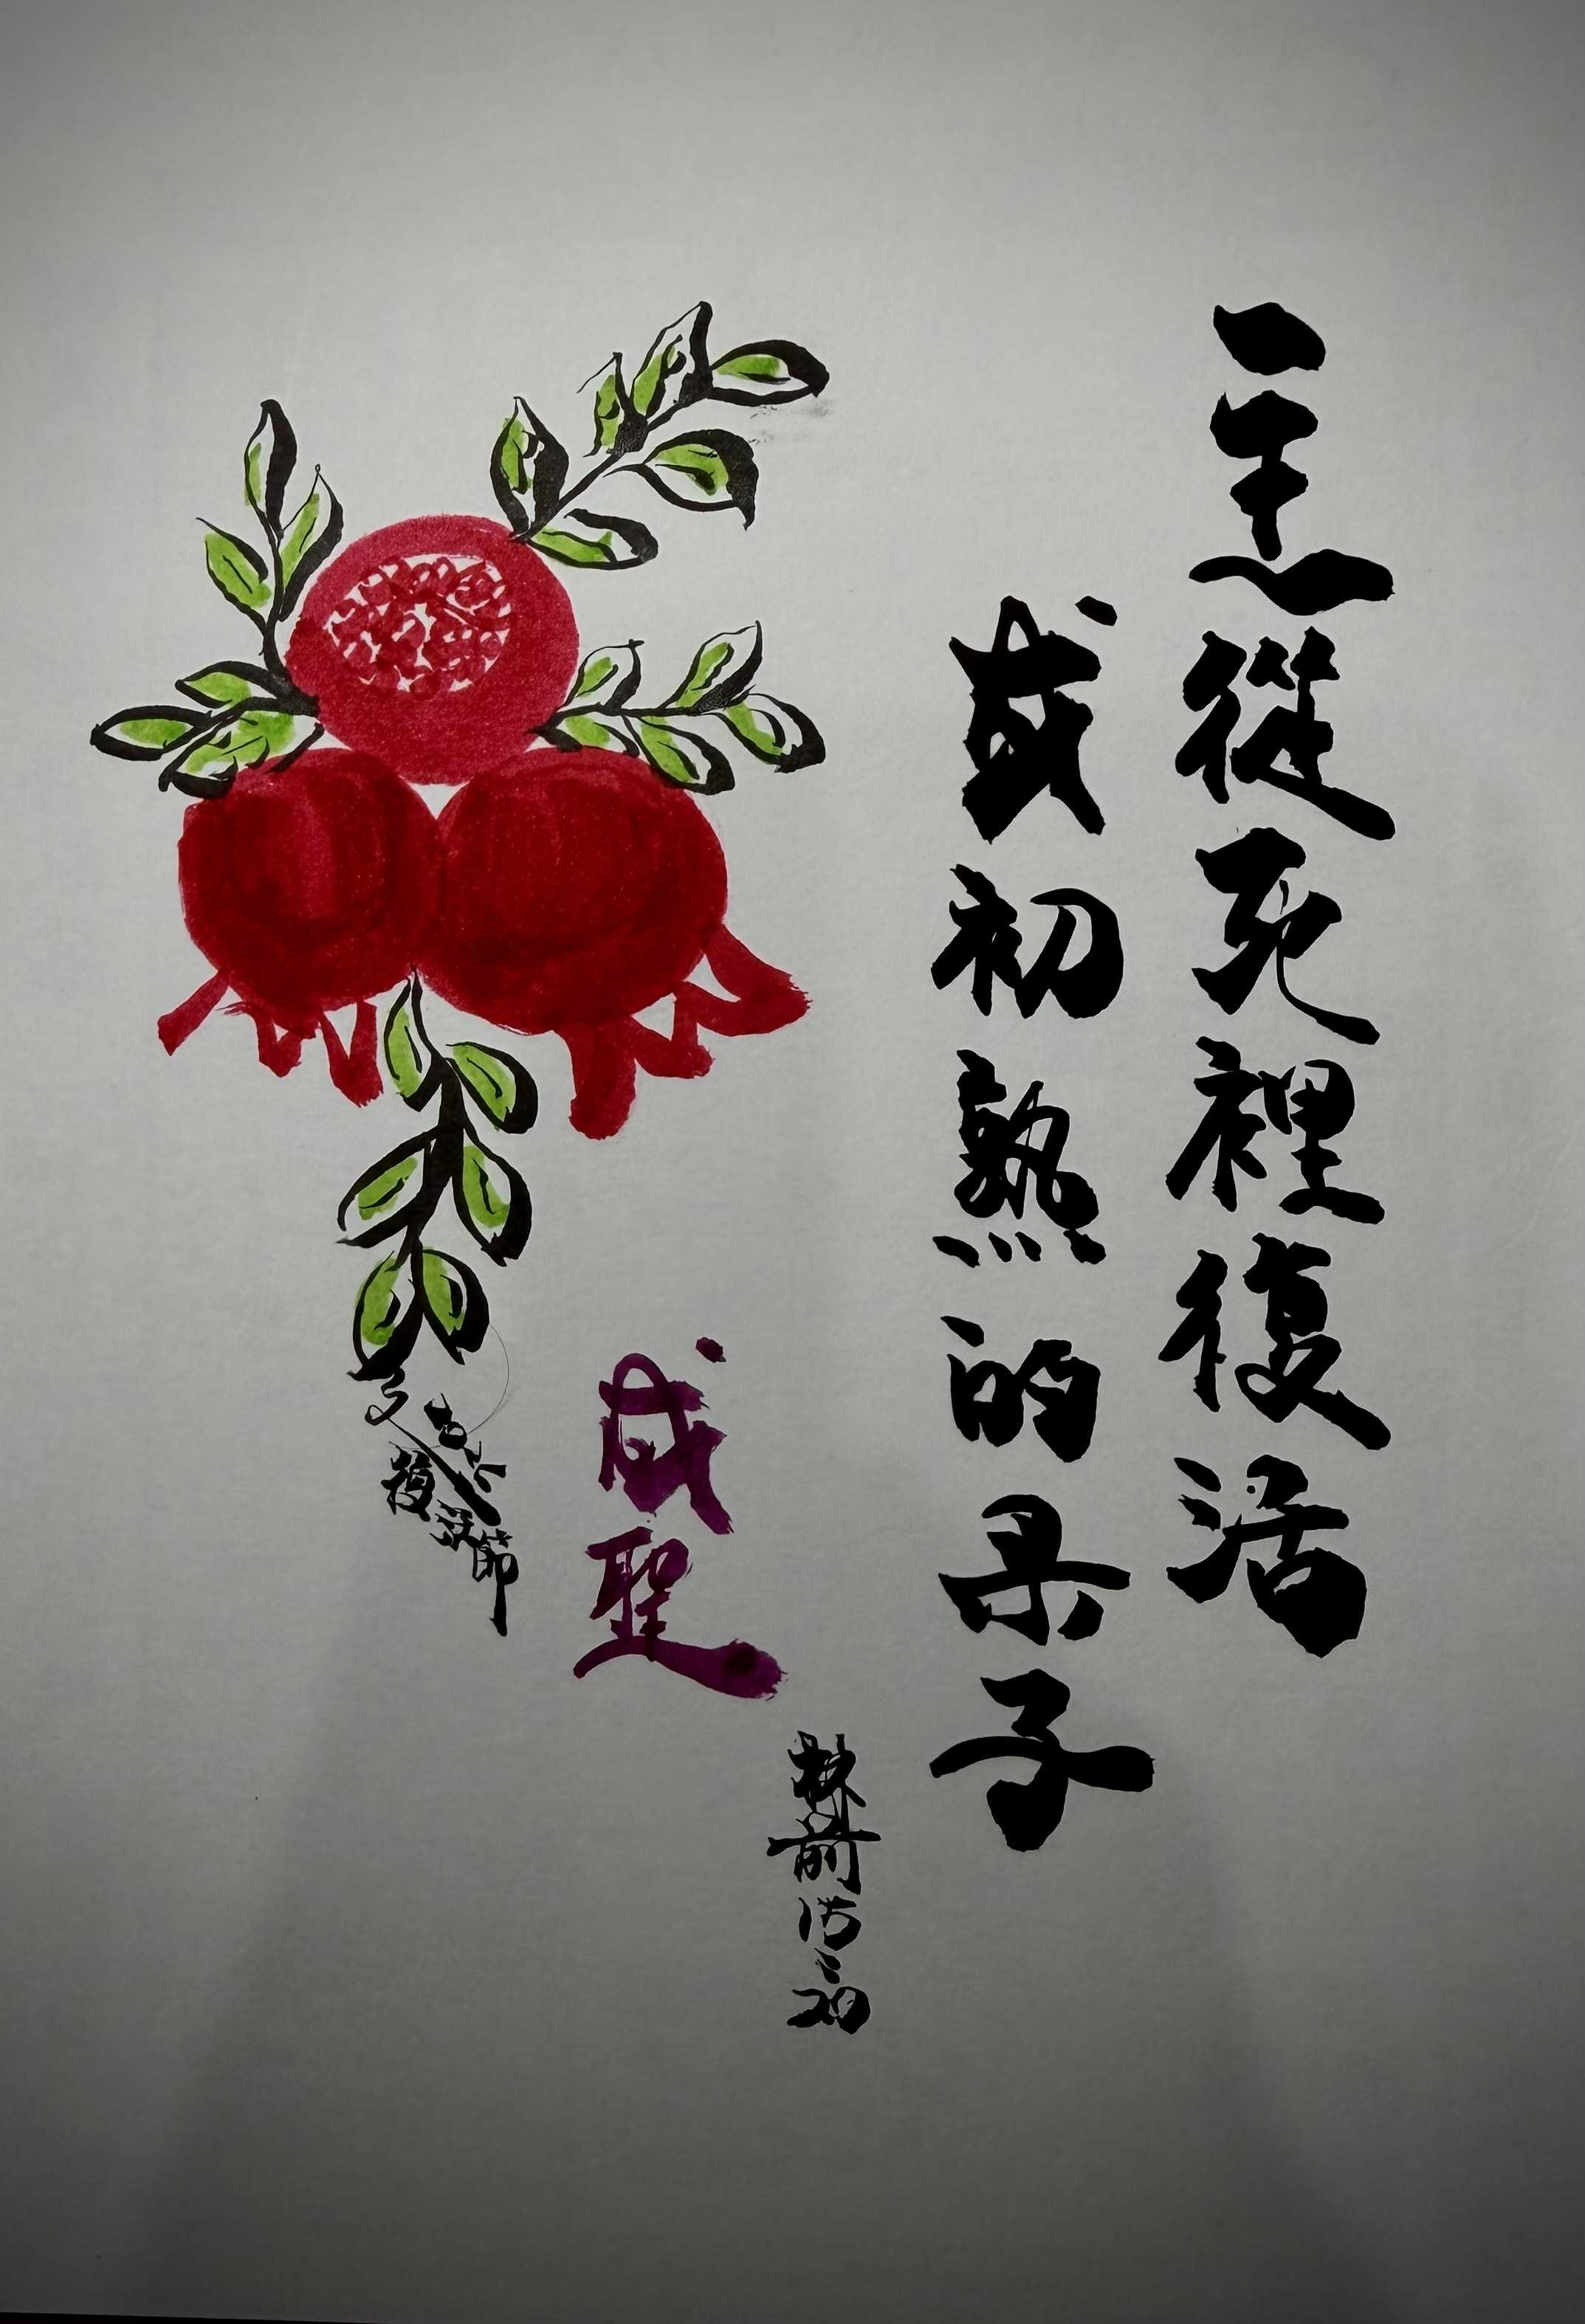 主從死裡復活
成初熟的果子
成聖
林前15:20
復活節